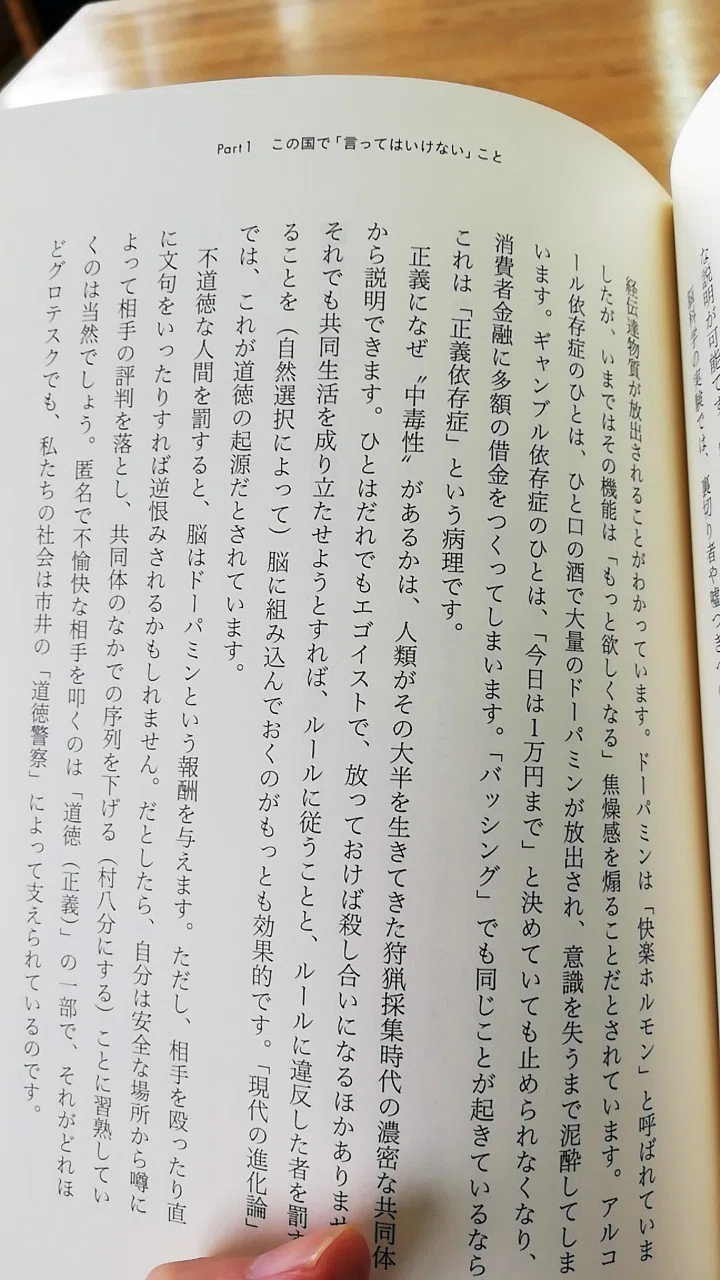 Part1 この国で「言ってはいけない」こと
経伝達物質が放出されることがわかっています。ドーパミンは「快楽ホルモン」と呼ばれていま
したが、いまではその機能は「もっと欲しくなる」焦燥感を煽ることだとされています。アルコ
ール依存症のひとは、ひと口の酒で大量のドーパミンが放出され、意識を失うまで泥酔してしま
います。ギャンブル依存症のひとは、「今日は1万円まで」と決めていても止められなくなり、
消費者金融に多額の借金をつくってしまいます。「バッシング」でも同じことが起きているなら
これは「正義依存症」という病理です。
正義になぜ〝中毒性〟があるかは、人類がその大半を生きてきた狩猟採集時代の濃密な共同体
から説明できます。ひとはだれでもエゴイストで、放っておけば殺し合いになるほかありませ
それでも共同生活を成り立たせようとすれば、ルールに従うことと、ルールに違反した者を罰す
ることを（自然選択によって）脳に組み込んでおくのがもっとも効果的です。「現代の進化論」
では、これが道徳の起源だとされています。
不道徳な人間を罰すると、脳はドーパミンという報酬を与えます。ただし、相手を殴ったり直
に文句をいったりすれば逆恨みされるかもしれません。だとしたら、自分は安全な場所から噂に
よって相手の評判を落とし、共同体のなかでの序列を下げる（村八分にする）ことに習熟してい
くのは当然でしょう。匿名で不愉快な相手を叩くのは「道徳（正義）」の一部で、それがどれほ
どグロテスクでも、私たちの社会は市井の「道徳警察」によって支えられているのです。
な説明が可能です。
脳科学の実験では、裏切り者や嘘つき